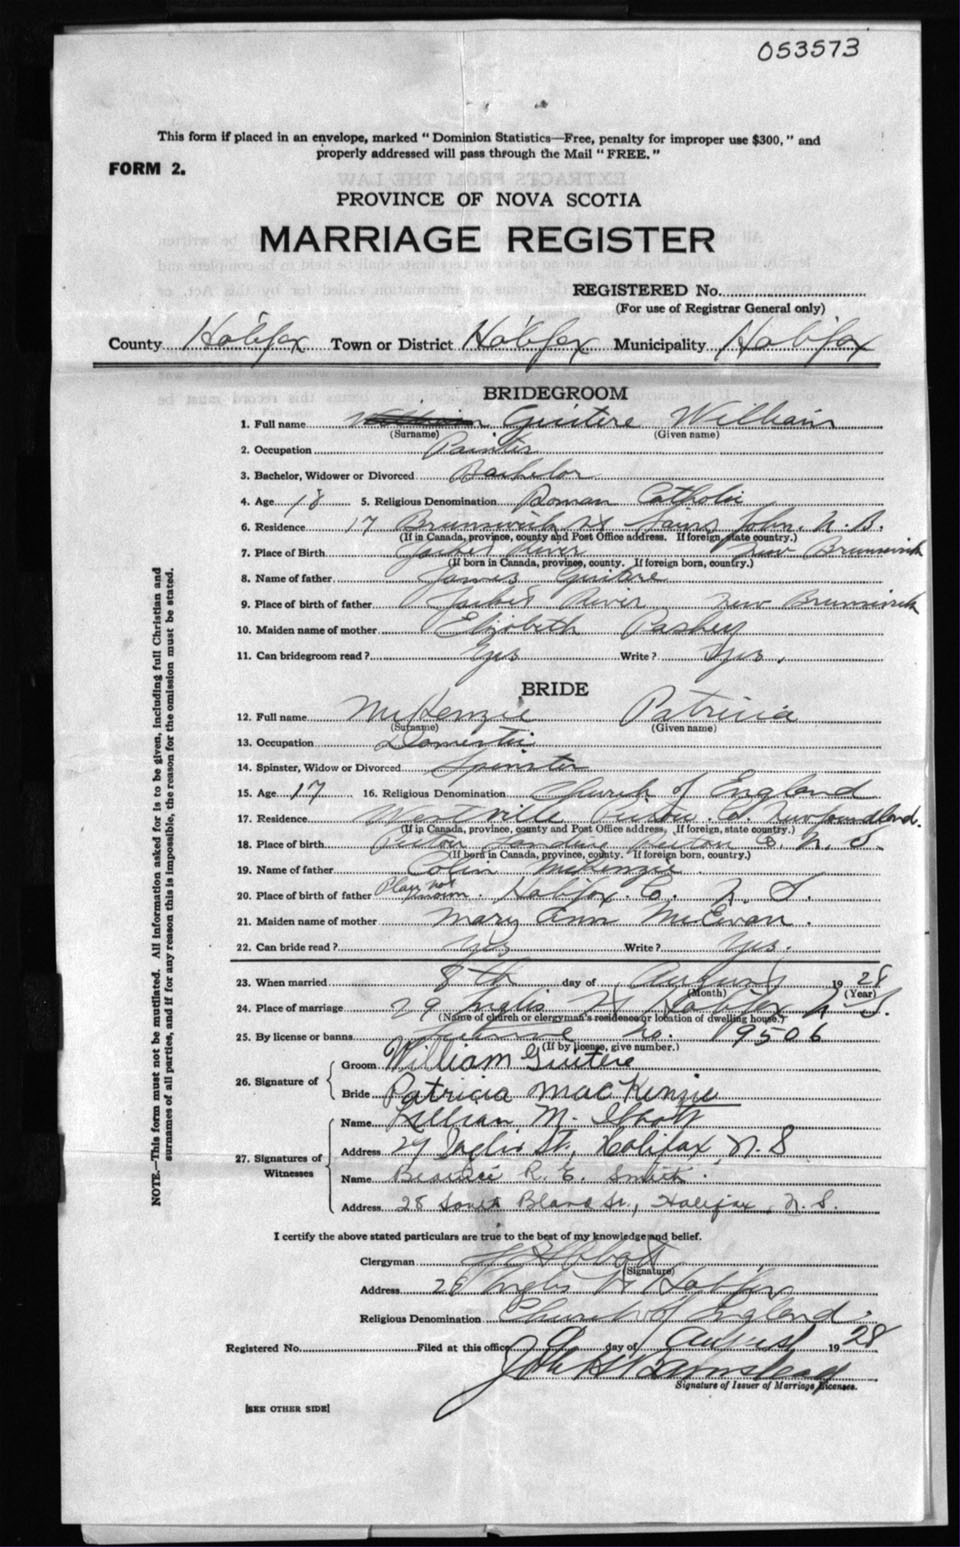 053573
This form if placed in an envelope, marked " Dominion Statistics—Free, penalty for improper use $300, " and
properly addressed will pass through the Mail " FREE. "
FORM 2.
PROVINCE OF NOVA SCOTIA
MARRIAGE REGISTER
REGISTERED No.
(For use of Registrar General only)
County Halifax Town or District Halifax Municipality Halifax
BRIDEGROOM
1. Full name Guitere William
(Surname) (Given name)
2. Occupation Painter
3. Bachelor, Widower or Divorced Bachelor
4. Age 18 5. Religious Denomination Roman Catholic
6. Residence 17 Brunswick St Saint John. N. B.
(If in Canada, province, county and Post Office address. If foreign, state country.)
7. Place of Birth Jacket River New Brunswick
(If born in Canada, province, county. If foreign born, country.)
8. Name of father James Guitere
9. Place of birth of father Jacket River New Brunswick
10. Maiden name of mother Elizabeth Pashey
11. Can bridegroom read ? Yes Write ? Yes.
BRIDE
12. Full name McKenzie Patricia
(Surname) (Given name)
13. Occupation Domestic
14. Spinster, Widow or Divorced Spinster
15. Age 17 16. Religious Denomination Church of England
17. Residence Westville Pictou Co. Newfoundland.
(If in Canada, province, county and Post Office address, If foreign, state country.)
18. Place of birth Pictou Landing Pictou Co. N. S.
(If born in Canada, province, county. If foreign born, country.)
19. Name of father Colin McKenzie.
20. Place of birth of father Place not known. Halifax. Co. N. S.
21. Maiden name of mother Mary Ann McEwan.
22. Can bride read ? Yes Write ? Yes.
23. When married 8th day of August 1928
(Month) (Year)
24. Place of marriage 29 Inglis St Halifax N. S.
(Name of church or clergyman's residence or location of dwelling house.)
25. By license or banns License No. 9506
(If by license, give number.)
26. Signature of
Groom William Guitere
Bride Patricia MacKenzie
27. Signatures of Witnesses
Name Lillian M.
Address 29 Inglis St., Halifax, N. S
Name R. E. Smith.
Address 28 South Bland St., Halifax, N. S.
I certify the above stated particulars are true to the best of my knowledge and belief.
Clergyman
(Signature)
Address 29 Inglis St Halifax
Religious Denomination Church of England.
Registered No. Filed at this office day of August 1928
Signature of Issuer of Marriage Licenses.
[SEE OTHER SIDE]
NOTE.—This form must not be mutilated. All information asked for is to be given, including full Christian and
surnames of all parties, and if for any reason this is impossible, the reason for the omission must be stated.